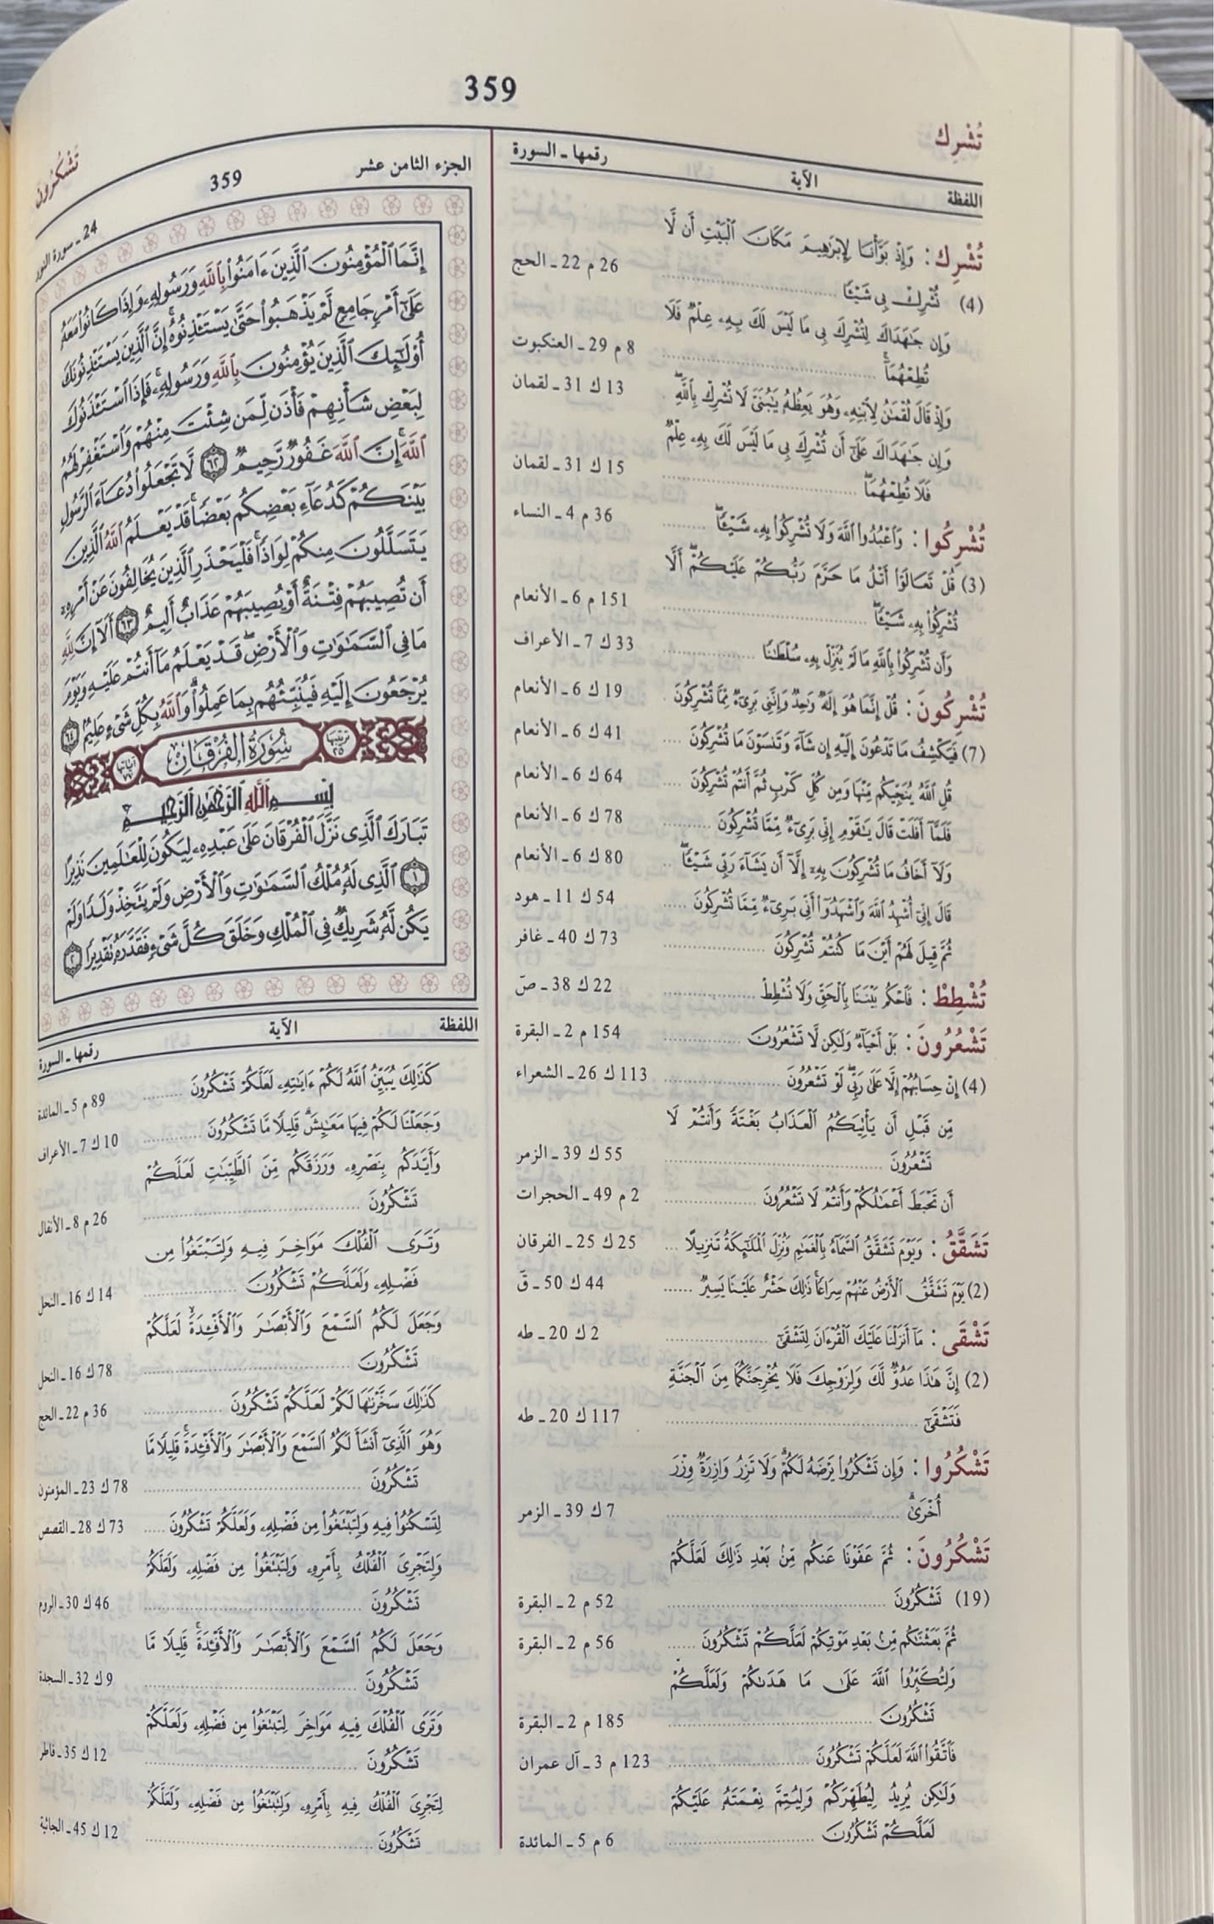 359
تُشْرِك
اللفظة الآية رقمها ـ السورة
تُشْرِك : وَإِذْ بَوَّأْنَا لِإِبْرَٰهِيمَ مَكَانَ ٱلْبَيْتِ أَن لَّا
(4) تُشْرِكْ بِى شَيْـًٔا ........ 26 م 22 ـ الحج
وَإِن جَٰهَدَاكَ لِتُشْرِكَ بِى مَا لَيْسَ لَكَ بِهِۦ عِلْمٌ فَلَا
تُطِعْهُمَآ ........ 8 م 29 ـ العنكبوت
وَإِذْ قَالَ لُقْمَٰنُ لِٱبْنِهِۦ وَهُوَ يَعِظُهُۥ يَٰبُنَىَّ لَا تُشْرِكْ بِٱللَّهِ . 13 ك 31 ـ لقمان
وَإِن جَٰهَدَاكَ عَلَىٰٓ أَن تُشْرِكَ بِى مَا لَيْسَ لَكَ بِهِۦ عِلْمٌ
فَلَا تُطِعْهُمَا ........ 15 ك 31 ـ لقمان
تُشْرِكُوا : وَٱعْبُدُوا۟ ٱللَّهَ وَلَا تُشْرِكُوا۟ بِهِۦ شَيْـًٔا ........ 36 م 4 ـ النساء
(3) قُلْ تَعَالَوْا۟ أَتْلُ مَا حَرَّمَ رَبُّكُمْ عَلَيْكُمْ أَلَّا
تُشْرِكُوا۟ بِهِۦ شَيْـًٔا ........ 151 م 6 ـ الأنعام
وَأَن تُشْرِكُوا۟ بِٱللَّهِ مَا لَمْ يُنَزِّلْ بِهِۦ سُلْطَٰنًا ........ 33 ك 7 ـ الأعراف
تُشْرِكُونَ : قُلْ إِنَّمَا هُوَ إِلَٰهٌ وَٰحِدٌ وَإِنَّنِى بَرِىٓءٌ مِّمَّا تُشْرِكُونَ 19 ك 6 ـ الأنعام
(7) فَيَكْشِفُ مَا تَدْعُونَ إِلَيْهِ إِن شَآءَ وَتَنسَوْنَ مَا تُشْرِكُونَ .... 41 ك 6 ـ الأنعام
قُلِ ٱللَّهُ يُنَجِّيكُم مِّنْهَا وَمِن كُلِّ كَرْبٍ ثُمَّ أَنتُمْ تُشْرِكُونَ .... 64 ك 6 ـ الأنعام
فَلَمَّآ أَفَلَتْ قَالَ يَٰقَوْمِ إِنِّى بَرِىٓءٌ مِّمَّا تُشْرِكُونَ ........ 78 ك 6 ـ الأنعام
وَلَآ أَخَافُ مَا تُشْرِكُونَ بِهِۦٓ إِلَّآ أَن يَشَآءَ رَبِّى شَيْـًٔا .. 80 ك 6 ـ الأنعام
قَالَ إِنِّىٓ أُشْهِدُ ٱللَّهَ وَٱشْهَدُوٓا۟ أَنِّى بَرِىٓءٌ مِّمَّا تُشْرِكُونَ .... 54 ك 11 ـ هود
ثُمَّ قِيلَ لَهُمْ أَيْنَ مَا كُنتُمْ تُشْرِكُونَ ........ 73 ك 40 ـ غافر
تُشْطِطْ : فَٱحْكُم بَيْنَنَا بِٱلْحَقِّ وَلَا تُشْطِطْ ........ 22 ك 38 ـ صٓ
تَشْعُرُونَ : بَلْ أَحْيَآءٌ وَلَٰكِن لَّا تَشْعُرُونَ ........ 154 م 2 ـ البقرة
(4) إِنْ حِسَابُهُمْ إِلَّا عَلَىٰ رَبِّى لَوْ تَشْعُرُونَ ........ 113 ك 26 ـ الشعراء
مِّن قَبْلِ أَن يَأْتِيَكُمُ ٱلْعَذَابُ بَغْتَةً وَأَنتُمْ لَا
تَشْعُرُونَ ........ 55 ك 39 ـ الزمر
أَن تَحْبَطَ أَعْمَٰلُكُمْ وَأَنتُمْ لَا تَشْعُرُونَ ........ 2 م 49 ـ الحجرات
تَشَقَّقُ : وَيَوْمَ تَشَقَّقُ ٱلسَّمَآءُ بِٱلْغَمَٰمِ وَنُزِّلَ ٱلْمَلَٰٓئِكَةُ تَنزِيلًا ... 25 ك 25 ـ الفرقان
(2) يَوْمَ تَشَقَّقُ ٱلْأَرْضُ عَنْهُمْ سِرَاعًا ذَٰلِكَ حَشْرٌ عَلَيْنَا يَسِيرٌ ...... 44 ك 50 ـ قٓ
تَشْقَى : مَآ أَنزَلْنَا عَلَيْكَ ٱلْقُرْءَانَ لِتَشْقَىٰٓ ........ 2 ك 20 ـ طه
(2) إِنَّ هَٰذَا عَدُوٌّ لَّكَ وَلِزَوْجِكَ فَلَا يُخْرِجَنَّكُمَا مِنَ ٱلْجَنَّةِ
فَتَشْقَىٰٓ ........ 117 ك 20 ـ طه
تَشْكُرُوا : وَإِن تَشْكُرُوا۟ يَرْضَهُ لَكُمْ وَلَا تَزِرُ وَازِرَةٌ وِزْرَ
أُخْرَىٰ ........ 7 ك 39 ـ الزمر
تَشْكُرُونَ : ثُمَّ عَفَوْنَا عَنكُم مِّنۢ بَعْدِ ذَٰلِكَ لَعَلَّكُمْ
(19) تَشْكُرُونَ ........ 52 م 2 ـ البقرة
ثُمَّ بَعَثْنَٰكُم مِّنۢ بَعْدِ مَوْتِكُمْ لَعَلَّكُمْ تَشْكُرُونَ ..... 56 م 2 ـ البقرة
وَلِتُكَبِّرُوا۟ ٱللَّهَ عَلَىٰ مَا هَدَىٰكُمْ وَلَعَلَّكُمْ
تَشْكُرُونَ ........ 185 م 2 ـ البقرة
فَٱتَّقُوا۟ ٱللَّهَ لَعَلَّكُمْ تَشْكُرُونَ ........ 123 م 3 ـ آل عمران
وَلَٰكِن يُرِيدُ لِيُطَهِّرَكُمْ وَلِيُتِمَّ نِعْمَتَهُۥ عَلَيْكُمْ
لَعَلَّكُمْ تَشْكُرُونَ ........ 6 م 5 ـ المائدة
تَشْكُرُونَ
الجزء الثامن عشر 359 24 ـ سورة النور
إِنَّمَا ٱلْمُؤْمِنُونَ ٱلَّذِينَ ءَامَنُوا۟ بِٱللَّهِ وَرَسُولِهِۦ وَإِذَا كَانُوا۟ مَعَهُۥ
عَلَىٰٓ أَمْرٍ جَامِعٍ لَّمْ يَذْهَبُوا۟ حَتَّىٰ يَسْتَـْٔذِنُوهُ إِنَّ ٱلَّذِينَ يَسْتَـْٔذِنُونَكَ
أُو۟لَٰٓئِكَ ٱلَّذِينَ يُؤْمِنُونَ بِٱللَّهِ وَرَسُولِهِۦ فَإِذَا ٱسْتَـْٔذَنُوكَ
لِبَعْضِ شَأْنِهِمْ فَأْذَن لِّمَن شِئْتَ مِنْهُمْ وَٱسْتَغْفِرْ لَهُمُ
ٱللَّهَ إِنَّ ٱللَّهَ غَفُورٌ رَّحِيمٌ ٦٢ لَّا تَجْعَلُوا۟ دُعَآءَ ٱلرَّسُولِ
بَيْنَكُمْ كَدُعَآءِ بَعْضِكُم بَعْضًا قَدْ يَعْلَمُ ٱللَّهُ ٱلَّذِينَ
يَتَسَلَّلُونَ مِنكُمْ لِوَاذًا فَلْيَحْذَرِ ٱلَّذِينَ يُخَالِفُونَ عَنْ أَمْرِهِۦٓ
أَن تُصِيبَهُمْ فِتْنَةٌ أَوْ يُصِيبَهُمْ عَذَابٌ أَلِيمٌ ٦٣ أَلَآ إِنَّ لِلَّهِ
مَا فِى ٱلسَّمَٰوَٰتِ وَٱلْأَرْضِ قَدْ يَعْلَمُ مَآ أَنتُمْ عَلَيْهِ وَيَوْمَ
يُرْجَعُونَ إِلَيْهِ فَيُنَبِّئُهُم بِمَا عَمِلُوا۟ وَٱللَّهُ بِكُلِّ شَىْءٍ عَلِيمٌۢ ٦٤
ترتيبها ٢٥ سُورَةُ الْفُرْقَانِ آياتها ٧٧
بِسْمِ ٱللَّهِ ٱلرَّحْمَٰنِ ٱلرَّحِيمِ
تَبَارَكَ ٱلَّذِى نَزَّلَ ٱلْفُرْقَانَ عَلَىٰ عَبْدِهِۦ لِيَكُونَ لِلْعَٰلَمِينَ نَذِيرًا
١ ٱلَّذِى لَهُۥ مُلْكُ ٱلسَّمَٰوَٰتِ وَٱلْأَرْضِ وَلَمْ يَتَّخِذْ وَلَدًا وَلَمْ
يَكُن لَّهُۥ شَرِيكٌ فِى ٱلْمُلْكِ وَخَلَقَ كُلَّ شَىْءٍ فَقَدَّرَهُۥ تَقْدِيرًا ٢
اللفظة الآية رقمها ـ السورة
كَذَٰلِكَ يُبَيِّنُ ٱللَّهُ لَكُمْ ءَايَٰتِهِۦ لَعَلَّكُمْ تَشْكُرُونَ ........ 89 م 5 ـ المائدة
وَجَعَلْنَا لَكُمْ فِيهَا مَعَٰيِشَ قَلِيلًا مَّا تَشْكُرُونَ ........ 10 ك 7 ـ الأعراف
وَأَيَّدَكُم بِنَصْرِهِۦ وَرَزَقَكُم مِّنَ ٱلطَّيِّبَٰتِ لَعَلَّكُمْ
تَشْكُرُونَ ........ 26 م 8 ـ الأنفال
وَتَرَى ٱلْفُلْكَ مَوَاخِرَ فِيهِ وَلِتَبْتَغُوا۟ مِن
فَضْلِهِۦ وَلَعَلَّكُمْ تَشْكُرُونَ ........ 14 ك 16 ـ النحل
وَجَعَلَ لَكُمُ ٱلسَّمْعَ وَٱلْأَبْصَٰرَ وَٱلْأَفْـِٔدَةَ لَعَلَّكُمْ
تَشْكُرُونَ ........ 78 ك 16 ـ النحل
كَذَٰلِكَ سَخَّرْنَٰهَا لَكُمْ لَعَلَّكُمْ تَشْكُرُونَ ........ 36 م 22 ـ الحج
وَهُوَ ٱلَّذِىٓ أَنشَأَ لَكُمُ ٱلسَّمْعَ وَٱلْأَبْصَٰرَ وَٱلْأَفْـِٔدَةَ قَلِيلًا مَّا
تَشْكُرُونَ ........ 78 ك 23 ـ المؤمنون
لِتَسْكُنُوا۟ فِيهِ وَلِتَبْتَغُوا۟ مِن فَضْلِهِۦ وَلَعَلَّكُمْ تَشْكُرُونَ ..... 73 ك 28 ـ القصص
وَلِتَجْرِىَ ٱلْفُلْكُ بِأَمْرِهِۦ وَلِتَبْتَغُوا۟ مِن فَضْلِهِۦ وَلَعَلَّكُمْ
تَشْكُرُونَ ........ 46 ك 30 ـ الروم
وَجَعَلَ لَكُمُ ٱلسَّمْعَ وَٱلْأَبْصَٰرَ وَٱلْأَفْـِٔدَةَ قَلِيلًا مَّا
تَشْكُرُونَ ........ 9 ك 32 ـ السجدة
وَتَرَى ٱلْفُلْكَ فِيهِ مَوَاخِرَ لِتَبْتَغُوا۟ مِن فَضْلِهِۦ وَلَعَلَّكُمْ
تَشْكُرُونَ ........ 12 ك 35 ـ فاطر
لِتَجْرِىَ ٱلْفُلْكُ فِيهِ بِأَمْرِهِۦ وَلِتَبْتَغُوا۟ مِن فَضْلِهِۦ وَلَعَلَّكُمْ
تَشْكُرُونَ ........ 12 ك 45 ـ الجاثية